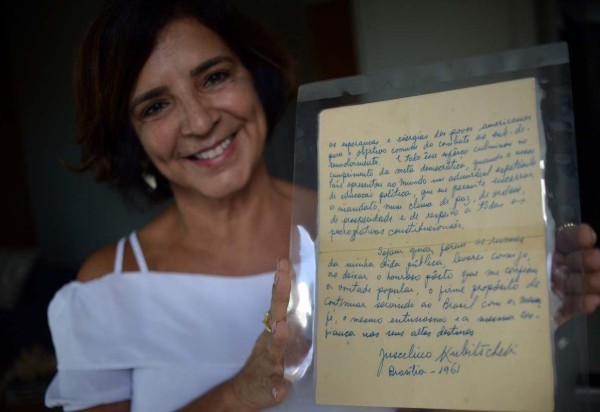 as esperanças e energias dos povos americanos
para o objetivo comum do combate ao sub-de-
senvolvimento. E todo esse esforço culminou no
cumprimento da meta democrática, quando o nosso
País apresentou ao mundo um admirável espetáculo
de educação política, que me permite encerrar
o mandato, num clima de paz, de ordem,
de prosperidade e de respeito a todas as
prerrogativas constitucionais.
Sejam quais forem os rumos
da minha vida pública, levarei comigo,
ao deixar o honroso pôsto que me confiou
a vontade popular, o firme propósito de
continuar servindo ao Brasil com a mesma
fé, o mesmo entusiasmo e a mesma con-
fiança nos seus altos destinos
Juscelino Kubitschek
Brasília - 1961